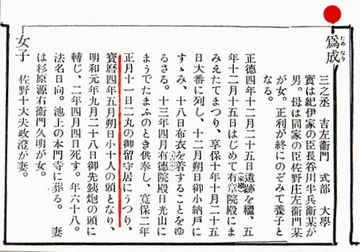 爲成
ためなり
三之丞 吉左衛門 式部 大學
實は紀伊家の臣長谷川半兵衛某が
男。母は同家の臣佐野庄左衛門某
が女。正利が終にのぞみて養子と
なり、
正德四年十二月二十五日遺跡を繼、五
年十二月十五日はじめて有章院殿にま
みえたてまつり、享保十年十月二十二
日大番に列し、十二月朔日小納戸に
すゝみ、十八日布衣を著することをゆ
るさる。十三年四月有德院殿日光山に
まうでたまふのとき供奉し、寬保二年
正月十一日二丸の御留守居にうつり、
寶曆四年五月朔日小十人の頭となり、
明和元年九月二十八日御先鉄炮の頭に
轉じ、二年四月四日死す。年六十八。
法名日向。池上の本門寺に葬る。妻
は杉原源右衛門久明が女。
女子 佐野十大夫政澄が妻。